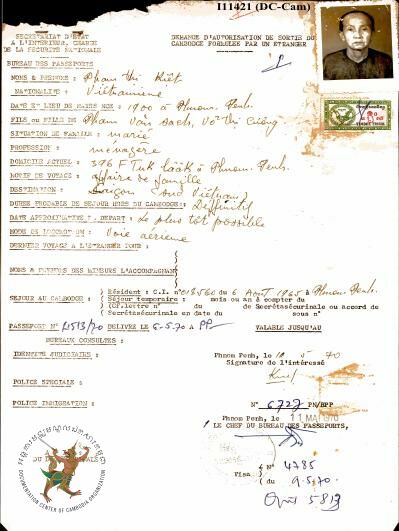 I11421 (DC-Cam)
SECRETARIAT D'ETAT
A L'INTERIEUR, CHARGE
DE LA SECURITE NATIONALE
DEMANDE D'AUTORISATION DE SORTIE DU
CAMBODGE FORMULEE PAR UN ETRANGER
BUREAU DES PASSEPORTS
NOMS & PRENOMS : Pham thi Kiêt
NATIONALITE : Vietnamienne
DATE ET LIEU DE NAISSANCE : 1900 à Phnom-Penh.
FILS ou FILLE DE : Pham van Sach, Vo thi
SITUATION DE FAMILLE : marié
PROFESSION : ménagère
DOMICILE ACTUEL : 396 F Tuk lââk à Phnom-Penh.
MOTIF DE VOYAGE : affaire de famille
DESTINATION : Saigon (Sud Vietnam)
DUREE PROBABLE DE SEJOUR HORS DU CAMBODGE : Définitif
DATE APPROXIMATIVE DEPART : Le plus tôt possible
MODE DE LOCOMOTION : Voie aérienne
DERNIER VOYAGE A L'ETRANGER POUR :
NOMS & PRENOMS DES MINEURS L'ACCOMPAGNANT
SEJOUR AU CAMBODGE : Résident : C.I. n° 018560 du 6 Août 1965 à Phnom Penh.
Séjour temporaire : mois ou an à compter du
(CF.lettre n° du de Secrétasécurinale ou accord de
Secrétasécurinale en date du sous n°
PASSEPORT N° 41513/70 DELIVRE LE 5-5.70 à PP VALABLE JUSQU'AU
BUREAUX CONSULTES :
IDENTITE JUDICIAIRE : Phnom Penh, le 10 5 70
Signature de l'intéressé
POLICE SPECIALE :
POLICE IMMIGRATION : N° 6727 PN/BPP
Phnom Penh, le 11 MAI 1970
LE CHEF DU BUREAU DES PASSEPORTS,
Visa N° 4785
du 9.5.70
5813
DOCUMENTATION CENTER OF CAMBODIA ORGANIZATION